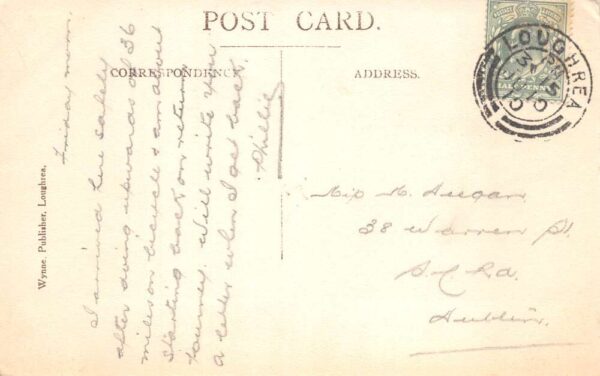 POST CARD.
CORRESPONDENCE.
ADDRESS.
Wynne, Publisher, Loughrea.
Friday morn.
I arrived here safely
after doing upwards of 36
miles on bicycle & am about
starting back on return
journey. Will write you
a letter when I get back.
Phillie
LOUGHREA
HALFPENNY
Miss M.
38 Warren St.
S.C.Rd.
Dublin.